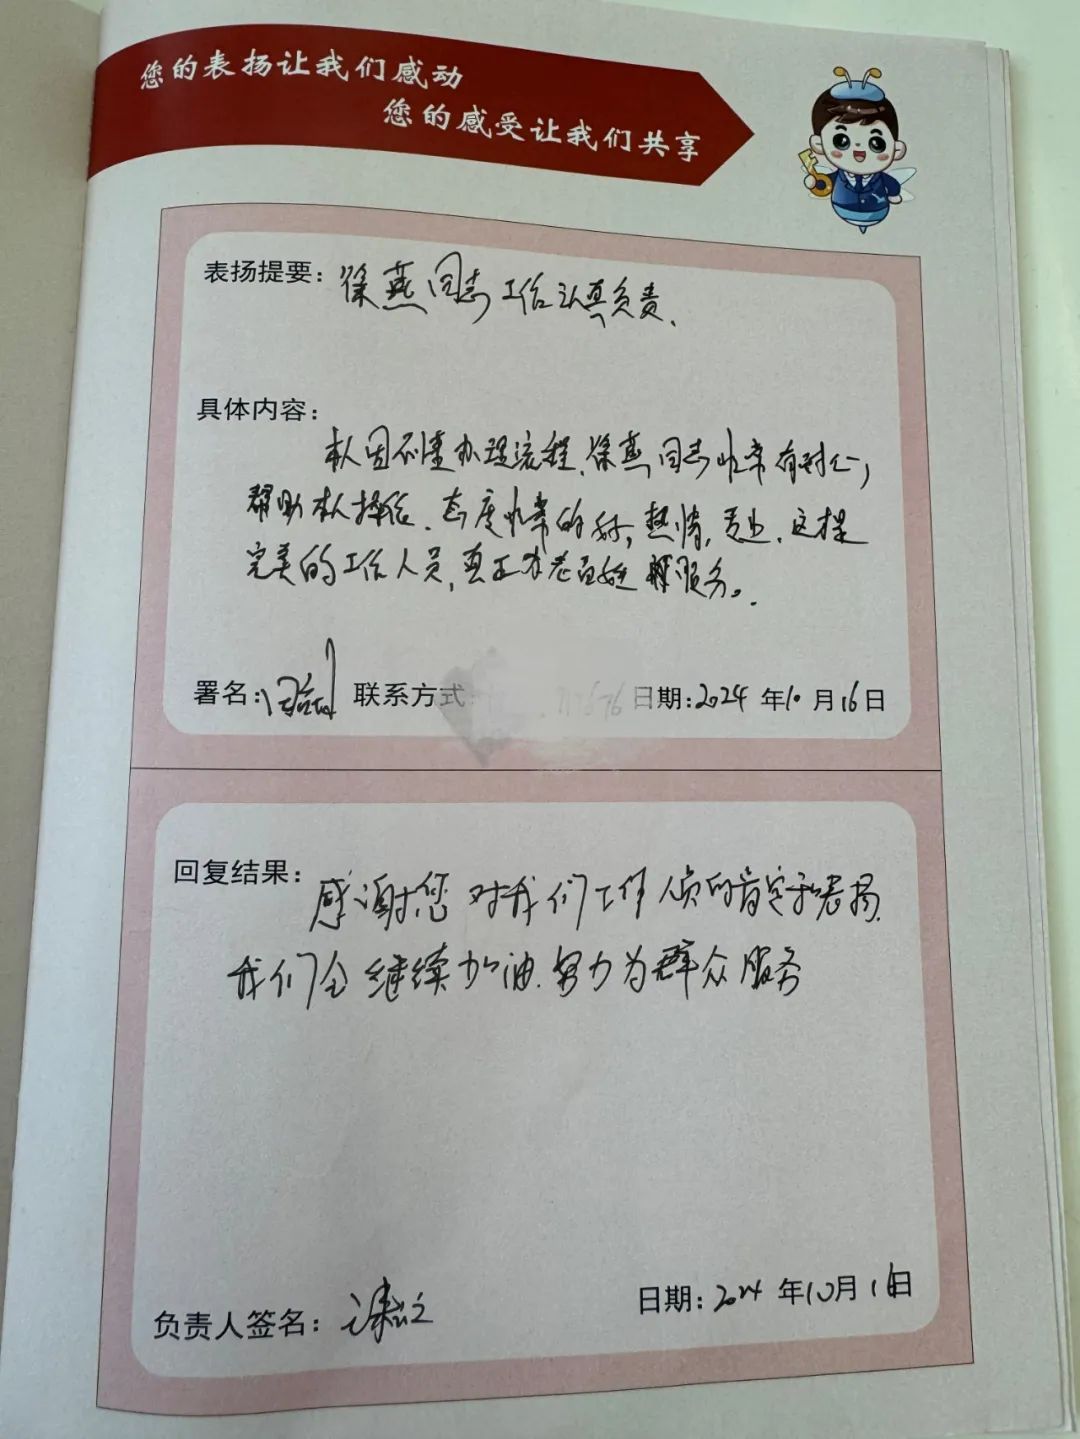 您的表扬让我们感动
您的感受让我们共享
表扬提要：徐燕同志工作认真负责.
具体内容：
本人因不清楚办理流程.徐燕同志非常有耐心,
帮助本人操作.态度非常的好,热情,专业.这才是
完美的工作人员,真正为老百姓服务。
署名： 联系方式 日期：2024年10月16日
回复结果：感谢您对我们工作人员的肯定和表扬.
我们会继续加油.努力为群众服务
负责人签名： 日期：2024年10月16日